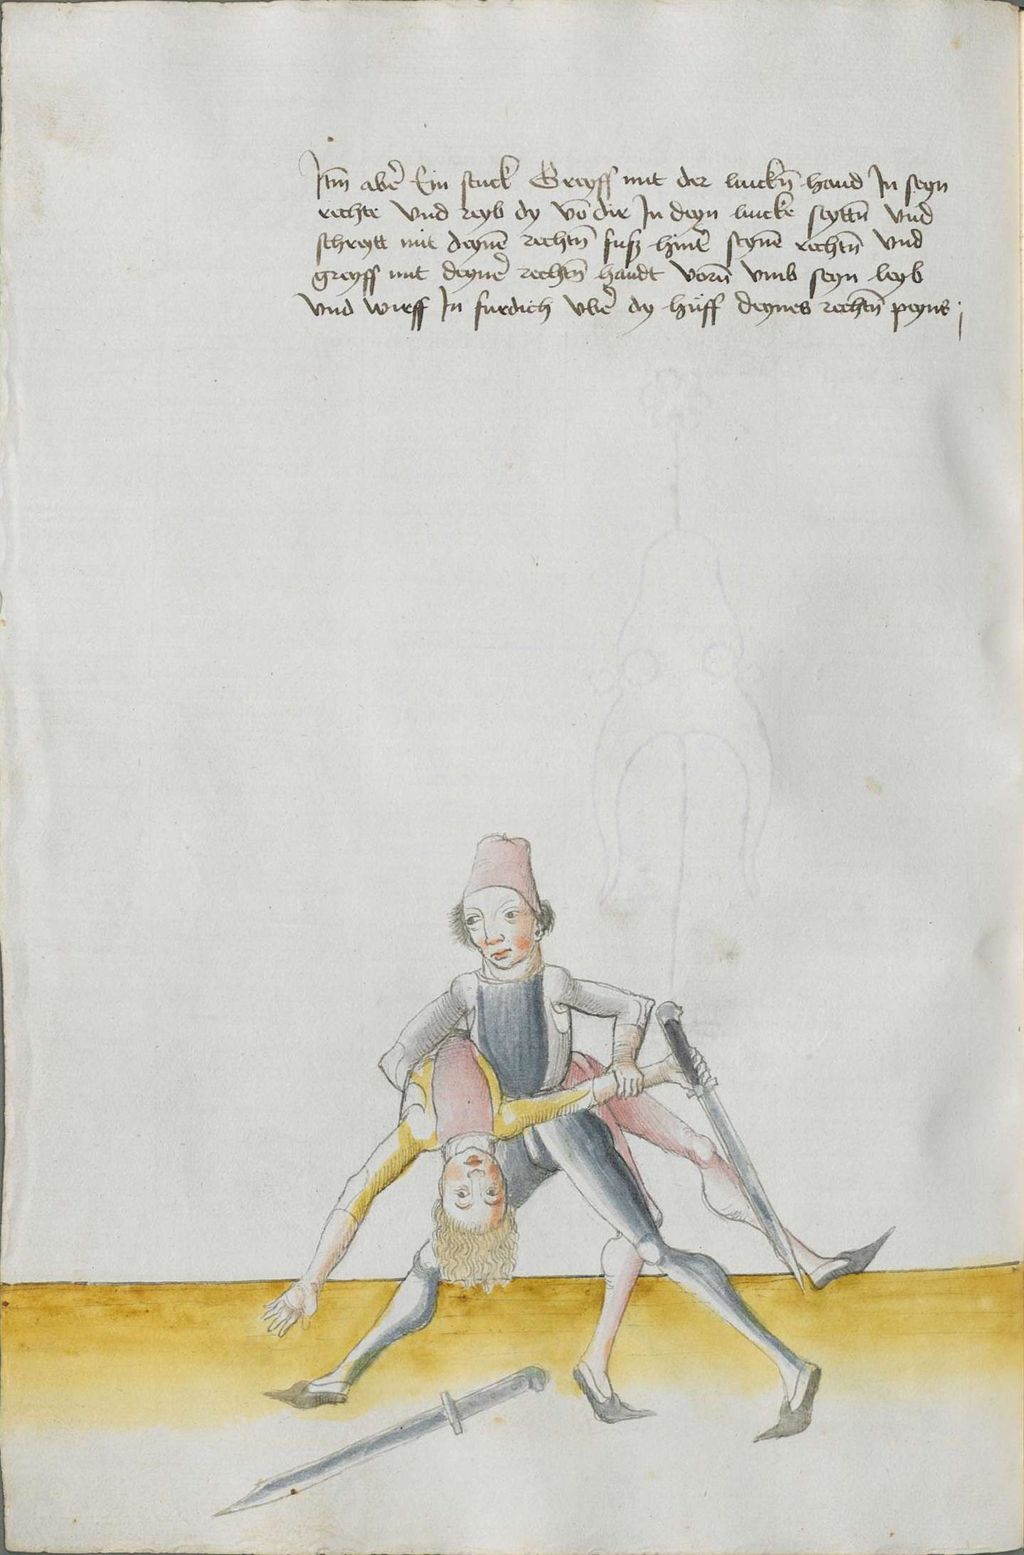 Itm̄ abe᷑ Ein stuck Greyff mit der linckn̄ hand In seyn
rechte vnd reyb dy vō dir In deyn lincke seyttn̄ vnd
schreytt mit deynē rechtn̄ fusz hint᷑ seynē rechtn̄ vnd
greyff mit deyne᷑ rechtn̄ handt vorn̄ vmb seyn leyb
vnd wirff In fur dich vbe᷑ dy hüff deynes rechtn̄ peyns